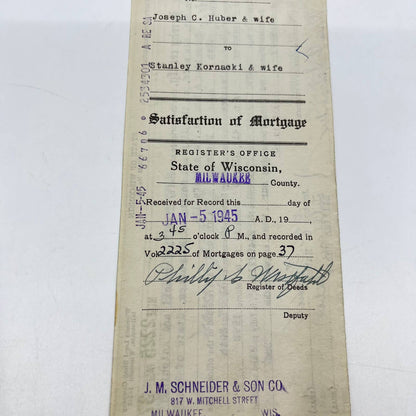 Joseph C. Huber & wife
TO
Stanley Kornacki & wife
Satisfaction of Mortgage
REGISTER'S OFFICE
State of Wisconsin,
MILWAUKEE County.
Received for Record this day of
JAN -5 1945 A. D., 19
at 3 45 o'clock P M., and recorded in
Vol. 2225 of Mortgages on page 37
Register of Deeds
Deputy
J. M. SCHNEIDER & SON CO
817 W. MITCHELL STREET
MILWAUKEE WIS
JAN-5-45